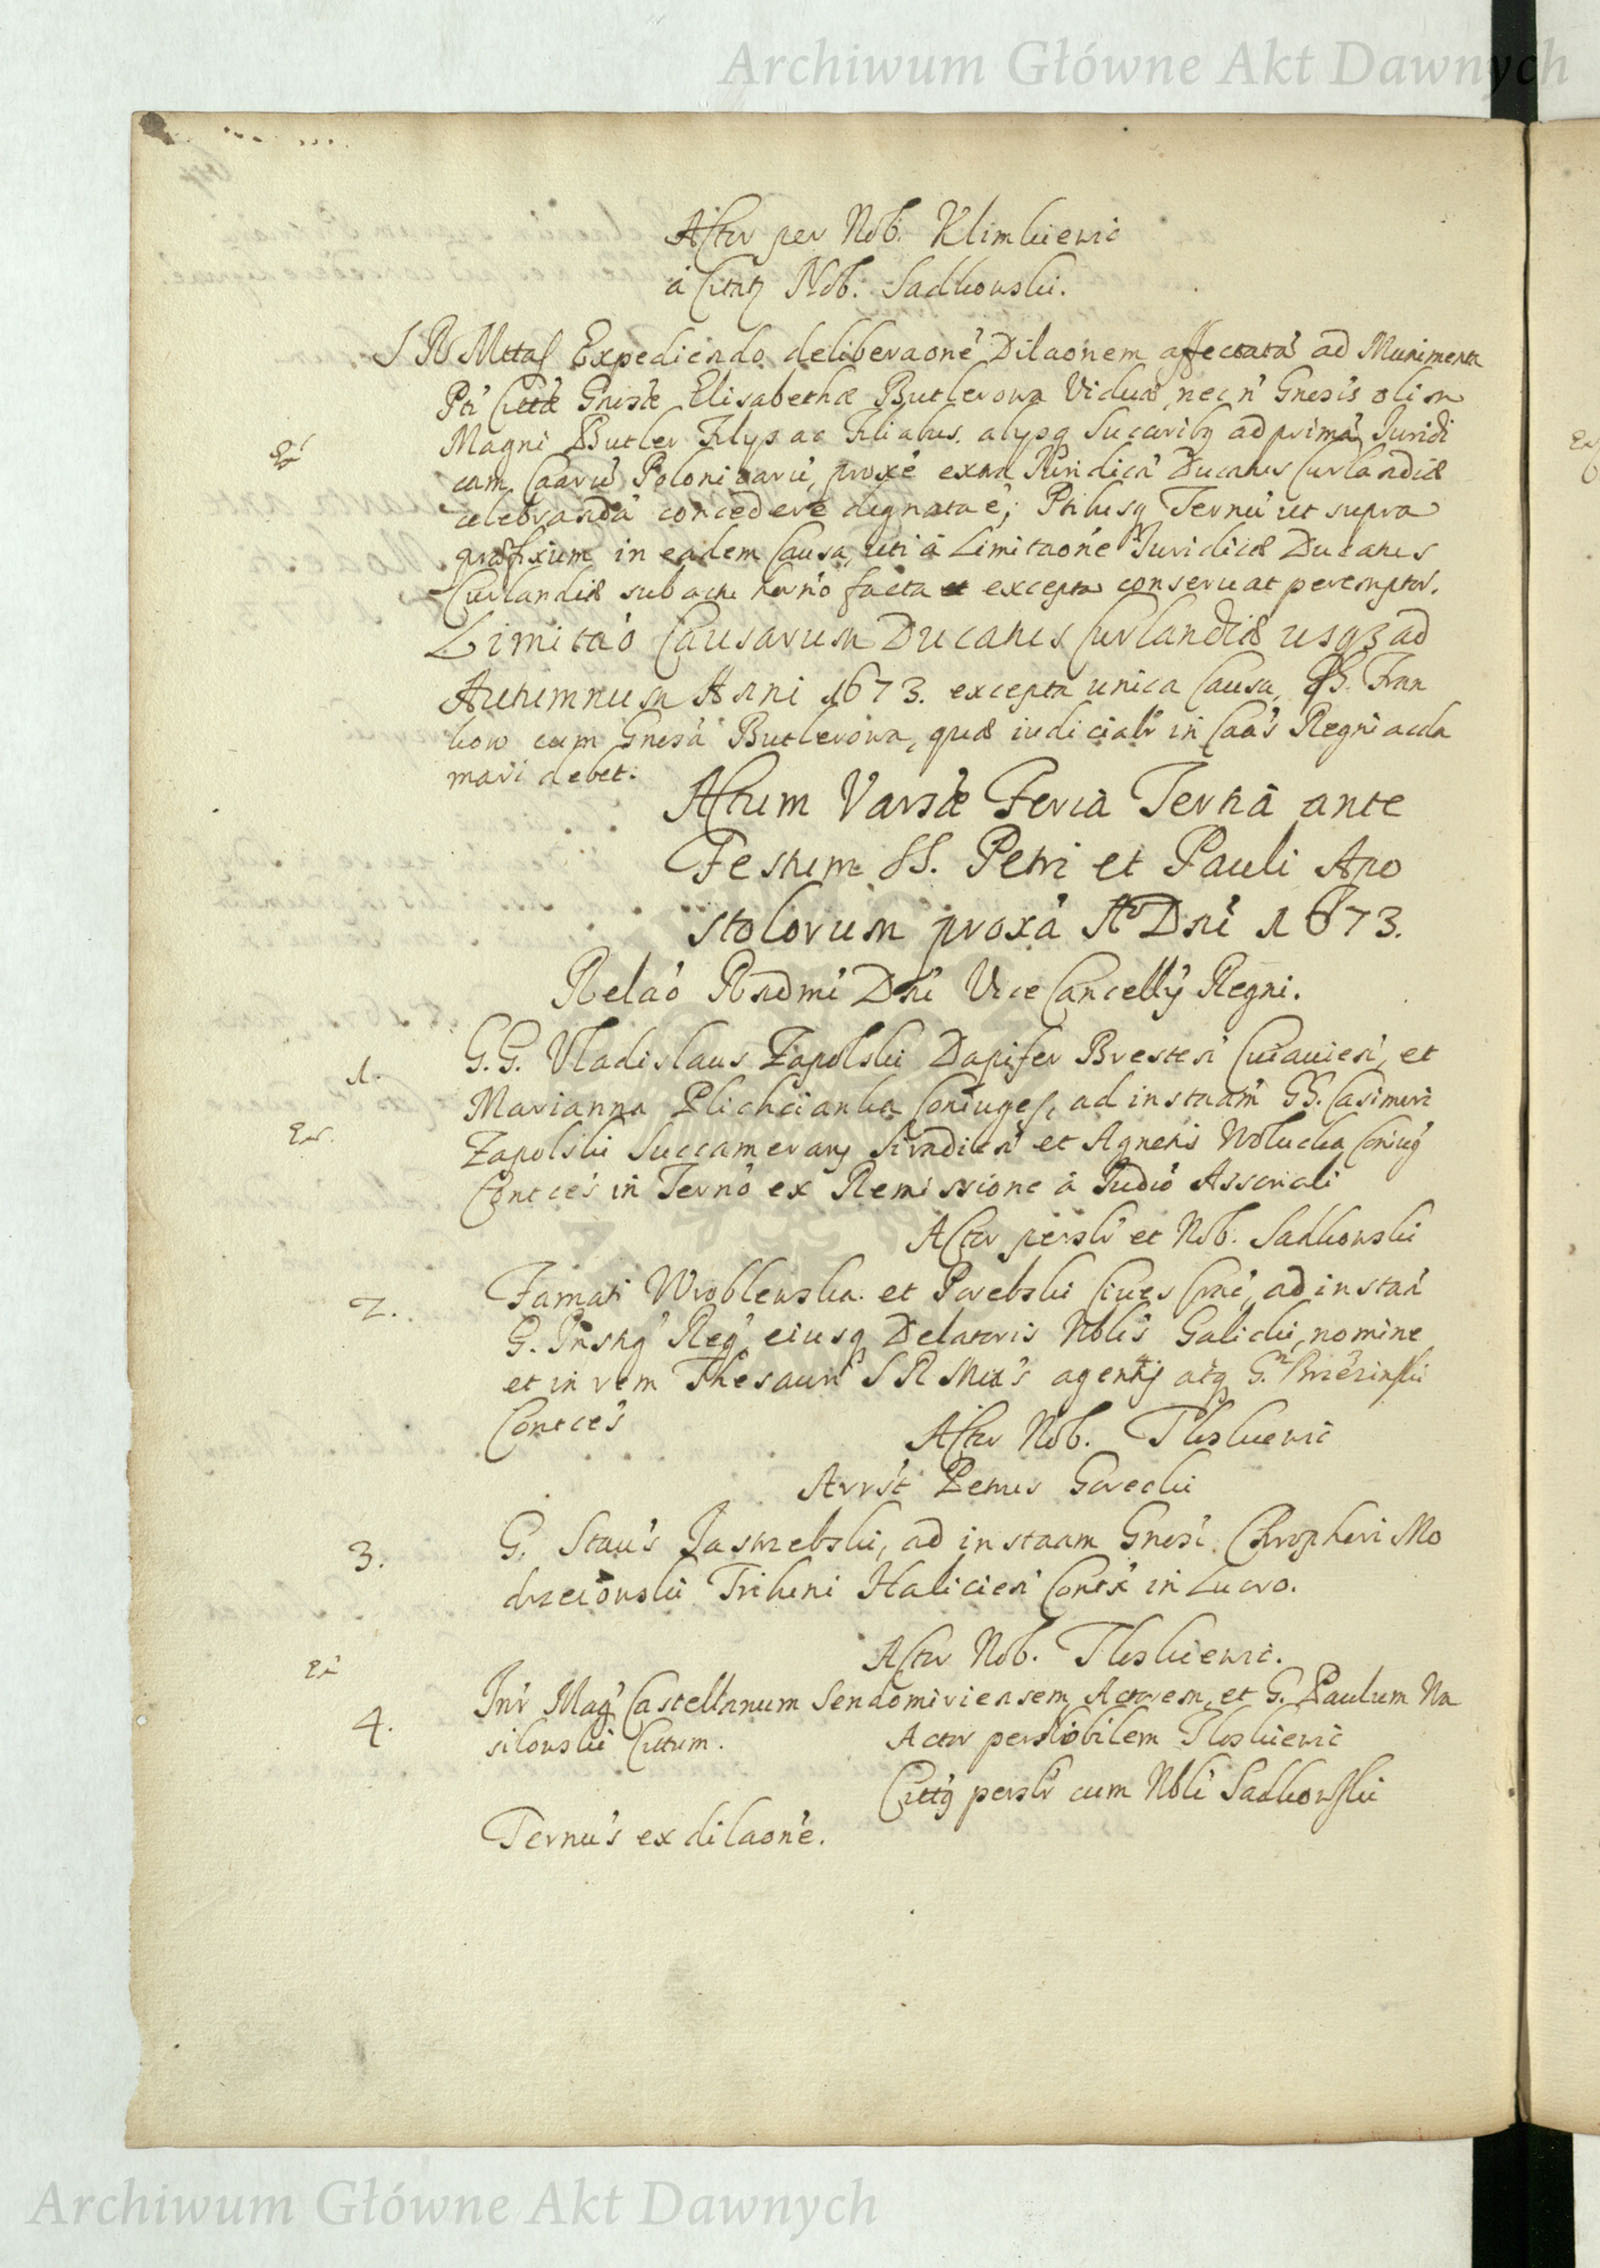 Archiwum Główne Akt Dawnych
Actor per Nob. Klimkiewic
à Citatq Nob. Sadkowski.
S R Mttas Expediendo deliberaonē Dilaonem affectatā ad Munimenta
Citae Gnosae Elisabethae Butlerowa Viduae, nec n̄ Gnosis olim
Magni Butler Filijs ac Filiabus, alijsq Succoribq ad primā Iuridi
cam Caarū Polonicarū, proxē extra Iuridicā Ducatus Curlandiae
celebrandā concedere dignata ē; Ptibusq Ternū ut supra
praefixum in eadem Causa, uti à Limitaonē Iuridicae Ducatus
Curlandiae sub actu hernō facta et excepta conservat peremptor.
Limitaō Causarum Ducatus Curlandiae usq3 ad
Autumnum Anni 1673. excepta unica Causa, GG. Fran
kow cum Gnosā Butlerowa, quae iudicialr in Caās Regni accla
mari debet.
Actum Varsae Feria Tertiâ ante
Festum SS. Petri et Pauli Apo
stolorum proxâ Aº Dnī 1673.
Relaō Rndmī Dnī Vice Cancellij Regni.
1.
G. G. Vladislaus Zapolski Dapifer Bresten Cuiavien, et
Marianna Plichcianka Coniuges, ad instaām GG. Casimiri
Er.
Zapolski Succamerarij Siradien et Agnetis Wolucka Coniug
Contces in Ternō ex Remissione à Iudiō Assoriali
Actor perslr et Nob. Sadkowski
2.
Famati Wroblewska et Porebski Cives Crac, ad instaā
G. Instig Reg eiusq Delatoris Nblis Galicki, nomine
et in rem Thesauri S R Mtis agentij atq G. Brzezinski
Contces
Actor Nob. Tloskiewic
Arrst Petrus Gorecki
3.
G. Staus Jastrzebski, ad instaam Gnosi Chrophori Mo
drzeiowski Tribuni Halicien Contx in Lucro.
Actor Nob. Tloskiewic.
4.
Intr Mag Castellanum Sendomiriensem Actorem, et G. Paulum Na
silowski Cittum.
Actor per Nobilem Tloskiewic
Cittq perslr cum Nbli Sadkowski
Ternus ex dilaone.
Archiwum Główne Akt Dawnych